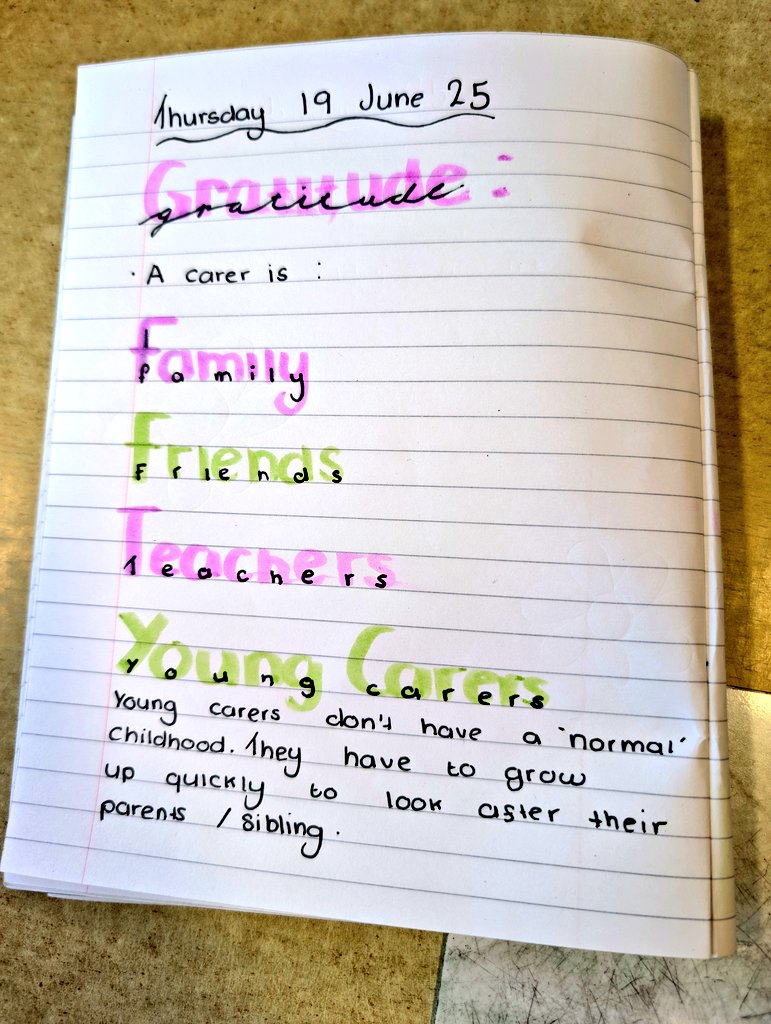 Thursday 19 June 25
Gratitude :
gratitude
· A carer is :
Family
family
Friends
Friends
Teachers
Teachers
Young Carers
Young carers
Young carers don't have a 'normal'
childhood. They have to grow
up quickly to look after their
parents / Sibling.